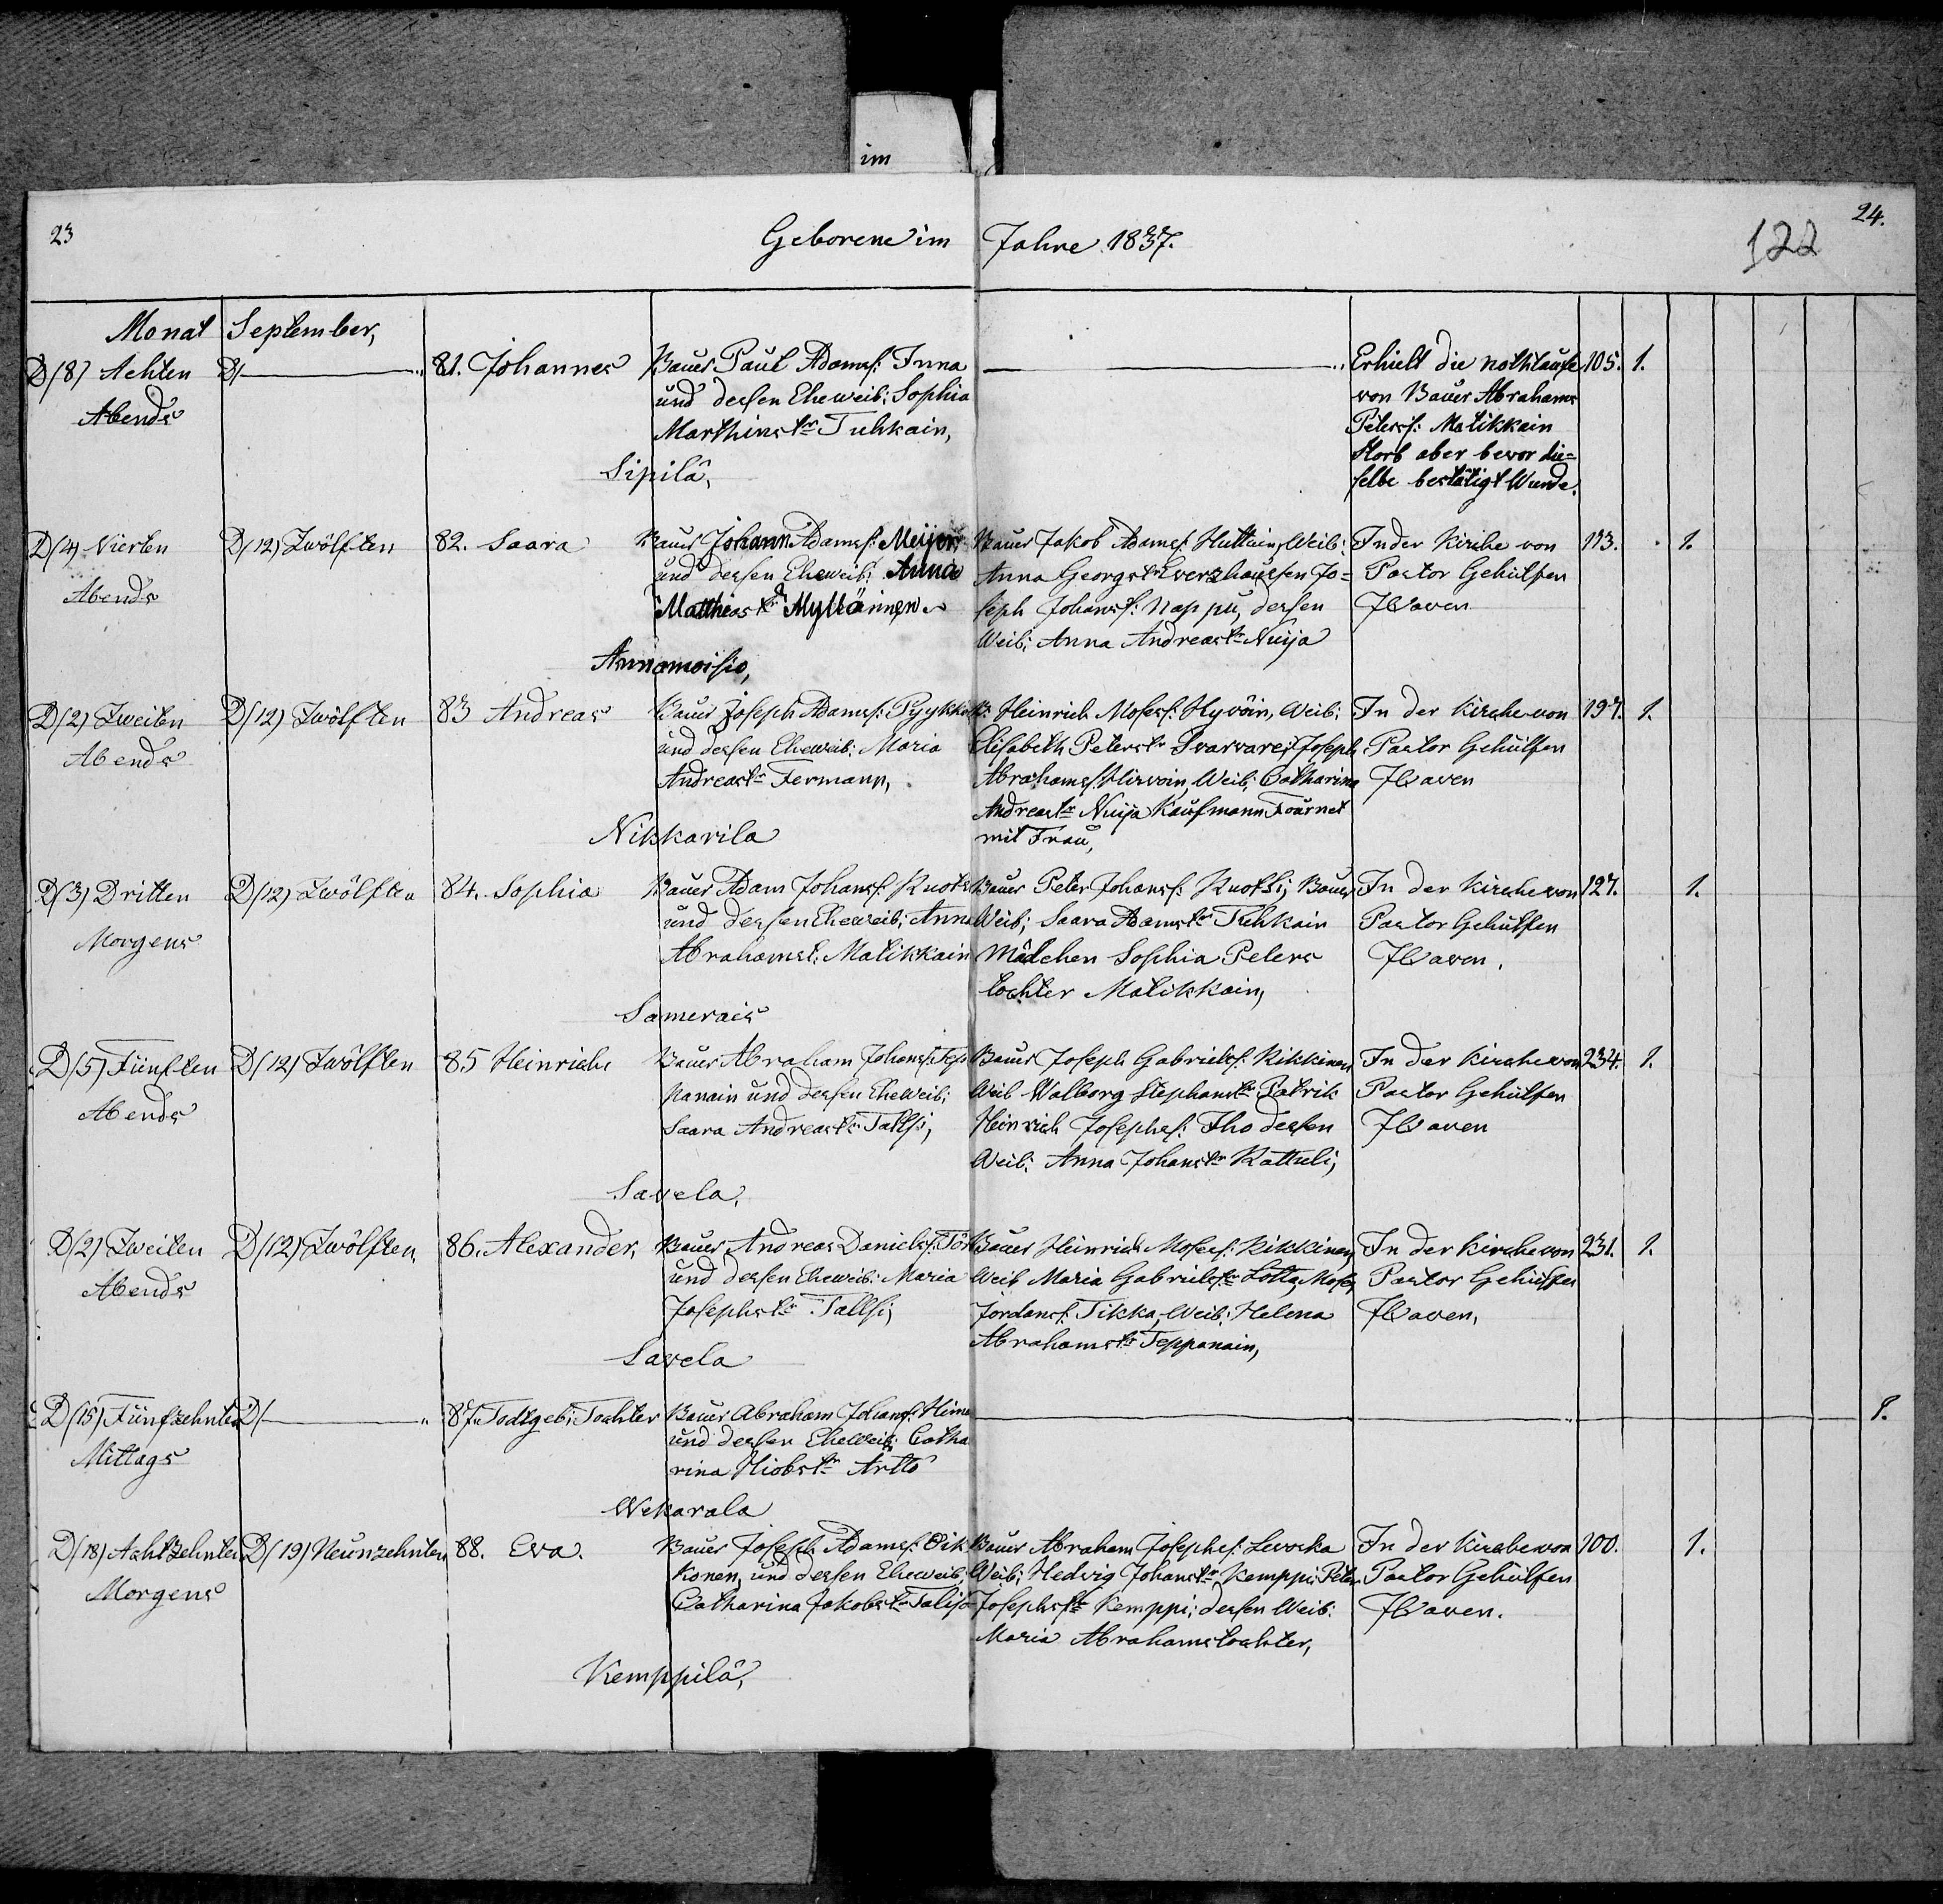 im
23
Geborene im Jahre 1837.
24.
122
Monat September,
D/8/ Achten D/ — " 81. Johannes Bauer Paul Adamss: Inna — " Erhielt die nothtaufe 105. 1.
Abends und dessen Eheweib: Sophia von Bauer Abrahams
Marthinstr Tuhkain, Peterss: Matikkain
Sipilä, Starb aber bevor die=
selbe bestätigt Wurde.
D/4/ Vierten D/12/ Zwölften 82. Saara Bauer Johann Adamss: Meijer Bauer Jakob Adamss: Huttain, Weib: In der Kirche von 113. 1.
Abends und dessen Eheweib: Anna Anna Georgstr Everzhaussen Jo= Pastor Gehülfen
Matthiastr Myllärinen seph Johanss: Nappu, dessen JWaven
Weib: Anna Andreastr Nuija
Annamoisio,
D/2/ Zweiten D/12/ Zwölften 83 Andreas Bauer Joseph Adamss: Pyykkö B: Heinrich Mosess: Hyvöin, Weib: In der Kirche von 197. 1.
Abends und dessen Eheweib: Maria Elisabeth Peterstr Joseph Pastor Gehülfen
Andreastr Fermann, Abrahamss: Hirvoin, Weib: Catharina JWaven
Andreastr Nuija Kaufmann Fournet
Nikkarila mit Frau,
D/3/ Dritten D/12/ Zwölften 84. Sophia Bauer Adam Johanss: Bauer Peter Johanss: Bauer In der Kirche von 127. 1.
Morgens und dessen Eheweib: Anna Weib: Saara Adamstr Tuhkain Pastor Gehülfen
Abrahamst: Matikkain Mädchen Sophia Peters JWaven.
tochter Matikkain,
Samerais
D/5/ Fünften D/12/ Zwölften 85 Heinrich Bauer Abraham Johanss: Bauer Joseph Gabrielss: Kikkinen In der Kirche von 234. 1.
Abends und dessen Eheweib: Weib Walborg Stephanstr Patrik Pastor Gehülfen
Saara Andreastr Tallsi, Heinrich Josephss: Iho dessen JWaven
Weib: Anna Johanstr Rattuli,
Savela,
D/2/ Zweiten D/12/ Zwölften, 86. Alexander, Bauer Andreas Danielss: Bauer Heinrich Mosess: Kikkinen, In der Kirche von 231. 1.
Abends und dessen Eheweib: Maria Weib Maria Gabrielstr Lotta, Moses Pastor Gehülfen
Josephstr Tallsi, Jordanss: Tikka, Weib: Helena JWaven,
Savela Abrahamstr Tepponain,
D/15/ Fünfzehnten D/ — " 87. Todtgeb: Tochter Bauer Abraham Johanss: — 1.
Mittags und dessen Eheweib: Catha
rina Hiobstr Artto
Wekarala
D/18/ Achtzehnten D/19/ Neunzehnten 88. Eva. Bauer Joseph Adamss: Oik Bauer Abraham Josephss: Levoska In der Kirche von 100. 1.
Morgens konen, und dessen Eheweib: Weib: Hedvig Johanstr Kemppi, Peter Pastor Gehülfen
Catharina Jakobstr Josephss: Kemppi, dessen Weib: JWaven.
Maria Abrahamstochter,
Kemppilä,